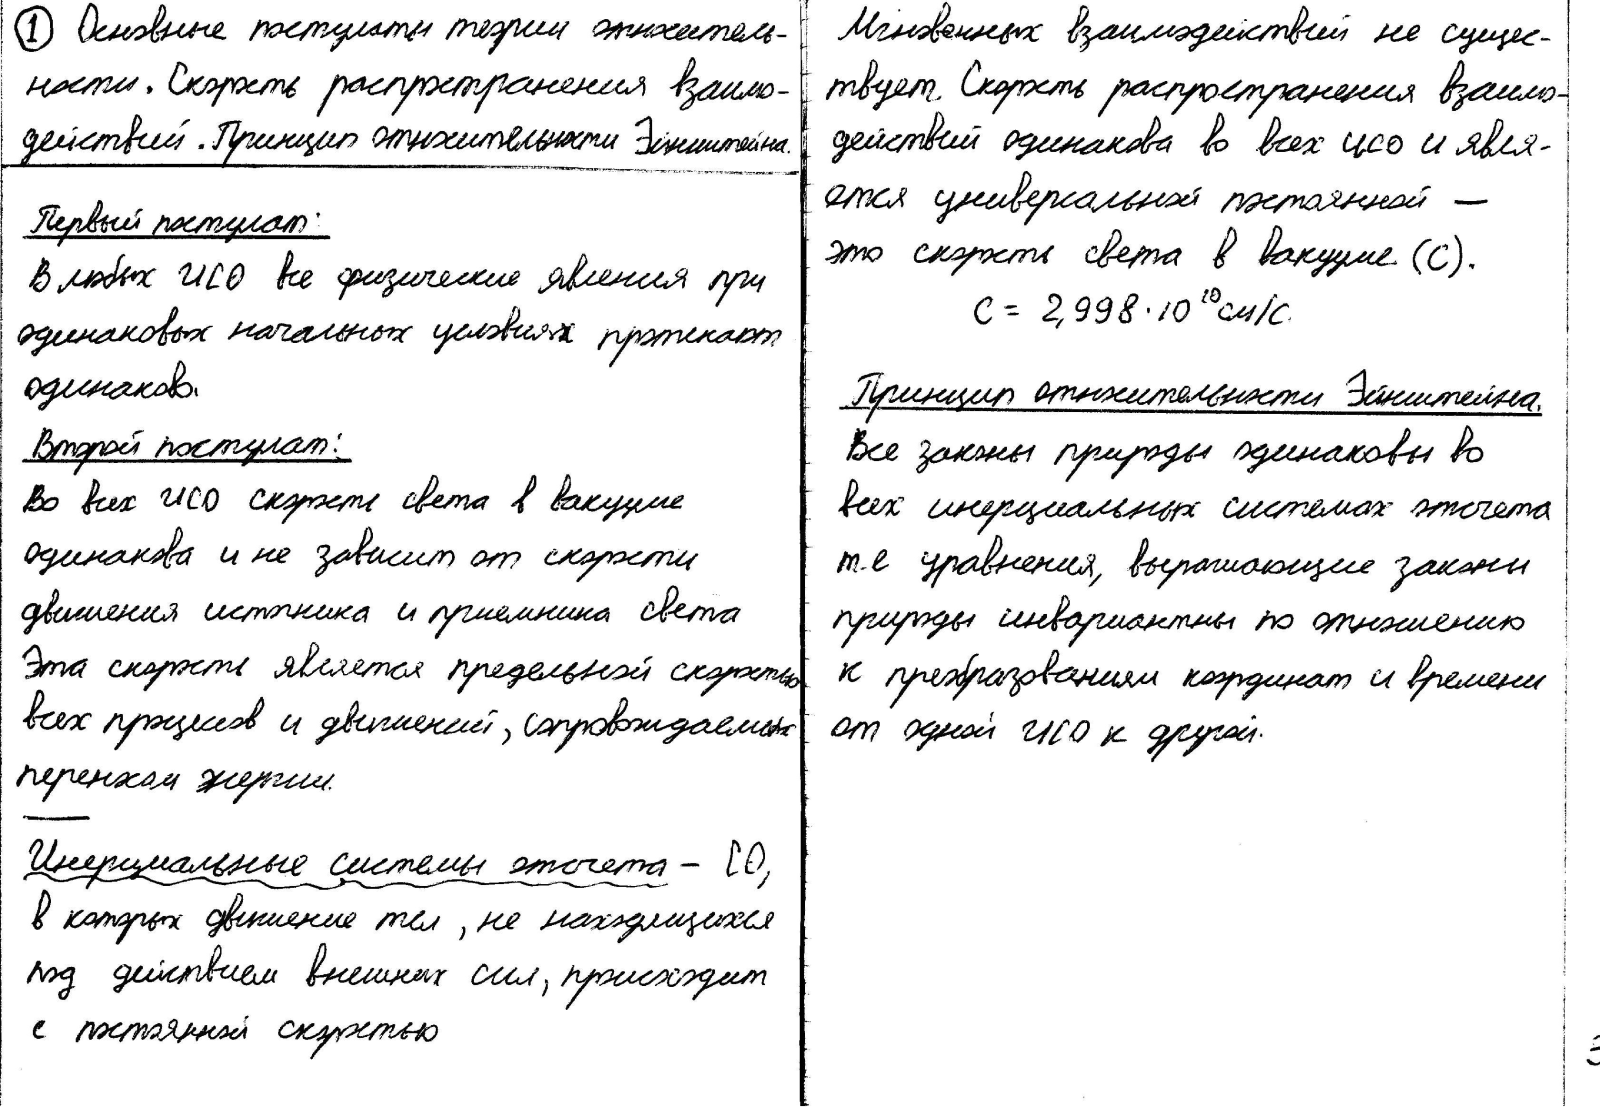 ① Основные постулаты теории относитель-
ности. Скорость распространения взаимо-
действий. Принцип относительности Эйнштейна.
Первый постулат:
В любых ИСО все физические явления при
одинаковых начальных условиях протекают
одинаково.
Второй постулат:
Во всех ИСО скорость света в вакууме
одинакова и не зависит от скорости
движения источника и приемника света
Эта скорость является предельной скоростью
всех процессов и движений, сопровождаемых
переносом энергии.
Инерциальные системы отсчета – СО,
в которых движение тел, не находящихся
под действием внешних сил, происходит
с постоянной скоростью
Мгновенных взаимодействий не сущес-
твует. Скорость распространения взаимо-
действий одинакова во всех ИСО и явля-
ется универсальной постоянной —
это скорость света в вакууме (С).
С = 2,998·10¹⁰ см/с.
Принцип относительности Эйнштейна.
Все законы природы одинаковы во
всех инерциальных системах отсчета
т.е уравнения, выражающие законы
природы инвариантны по отношению
к преобразованиям координат и времени
от одной ИСО к другой.
3